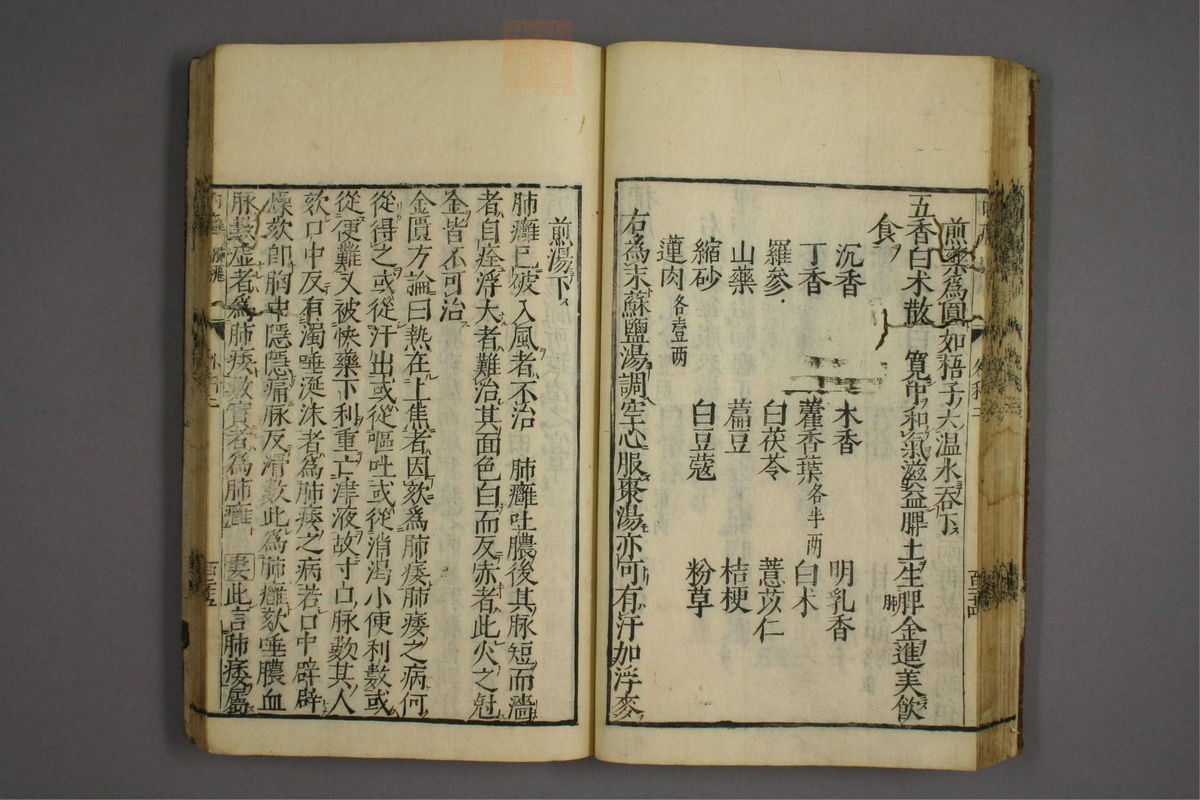 煎藥爲圓如梧子大温水吞下
五香白术散 寛中和氣滋益脾土生肺金進美飲
食
沉香 木香 明乳香
丁香 藿香葉各半两 白术
羅參 白茯苓 薏苡仁
山藥 萹豆 桔梗
縮砂 白豆蔻 粉草
蓮肉各壹两
右為末蘇鹽湯調空心服棗湯亦可有汗加浮麥
煎湯下
肺癰已破入風者不治 肺癰吐膿後其脉短而濇
者自痊浮大者難治其面色白而反赤者此火之尅
金皆不可治
金匱方論曰熱在上焦者因欬爲肺痿肺痿之病何
從得之或從汗出或從嘔吐或從消渴小便利數或
從便難又被快藥下利重亡津液故寸口脉數其人
欬口中反有濁唾涎沫者爲肺痿之病若口中辟辟
燥欬卽胸中隱隱痛脉反滑數此爲肺癰欬唾膿血
脉數虚者爲肺痿數實者爲肺癰 婁此言肺痿屬